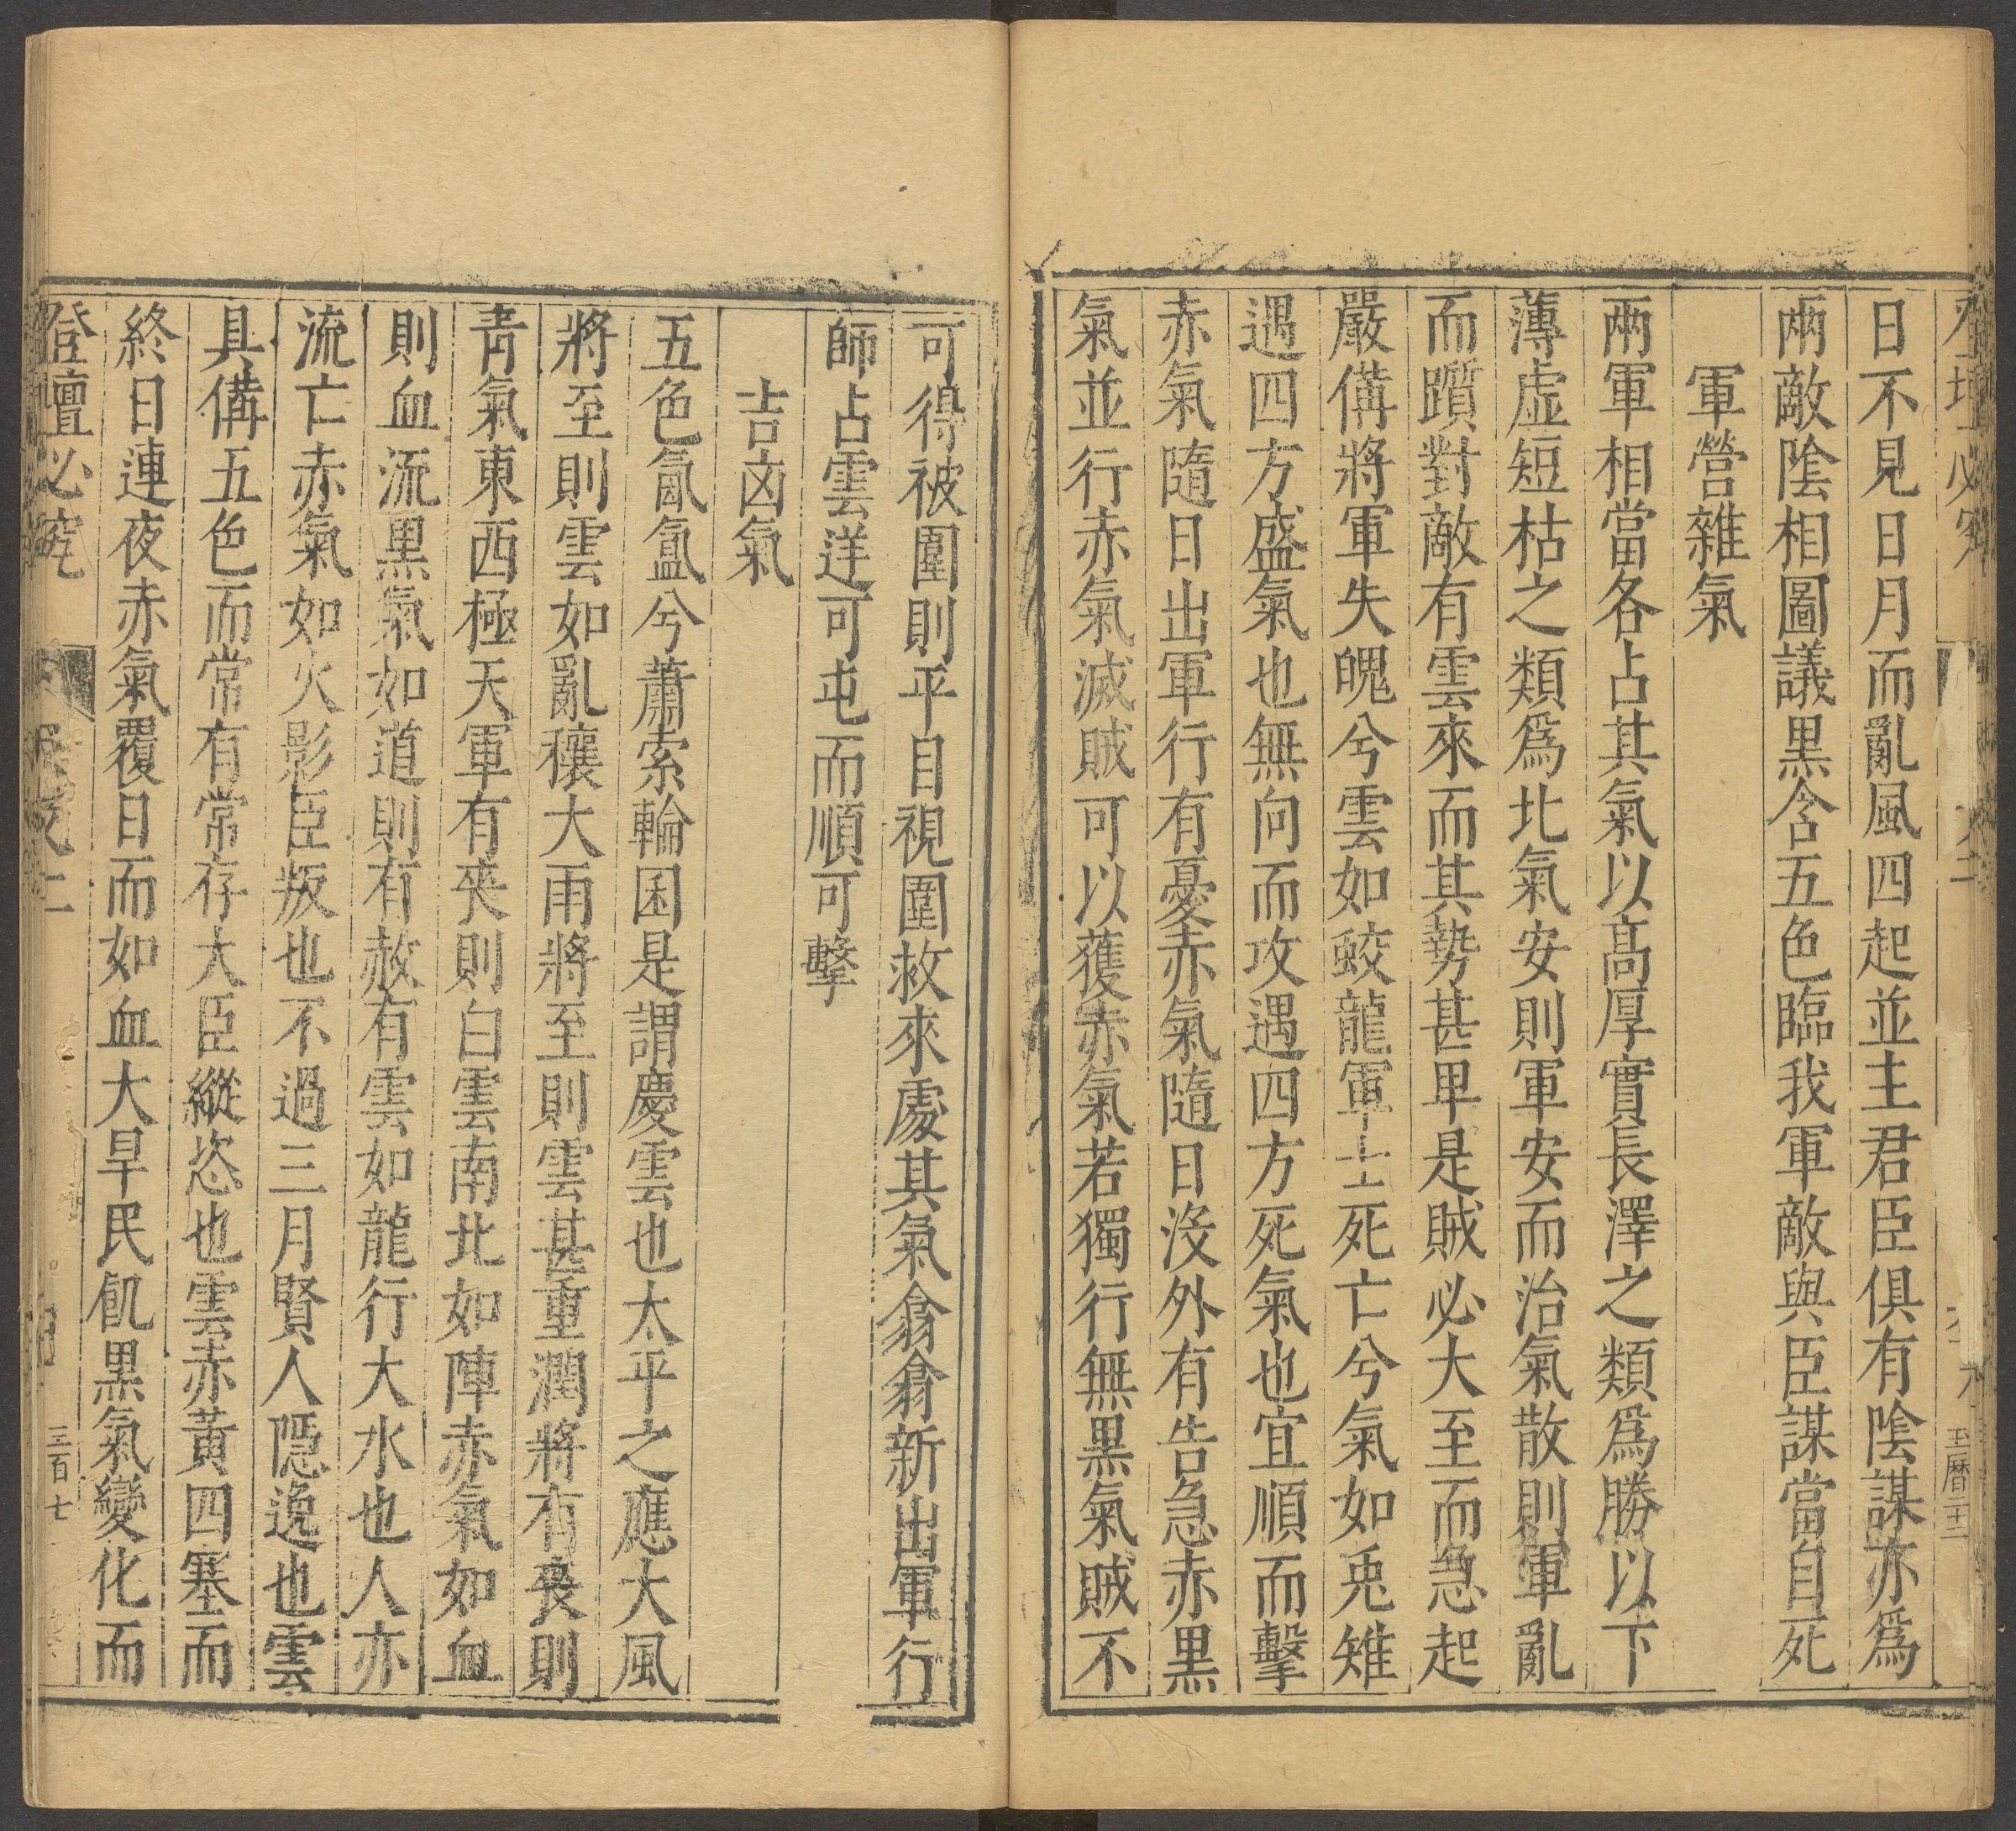 日不見日月而亂風四起並主君臣俱有陰謀亦爲
兩敵陰相圖議黒含五色臨我軍敵與臣謀當自死
軍營雜氣
兩軍相當各占其氣以高厚實長澤之類爲勝以下
薄虛短枯之類爲北氣安則軍安而治氣散則軍亂
而躓對敵有雲來而其勢甚卑是賊必大至而急起
嚴備將軍失魄兮雲如蛟龍軍士死亡兮氣如兎雉
遇四方盛氣也無向而攻遇四方死氣也宜順而擊
赤氣隨日出軍行有憂赤氣隨日沒外有告急赤黒
氣並行赤氣滅賊可以獲赤氣若獨行無黒氣賊不
可得被圍則平目視圍救來處其氣翕翕新出軍行
師占雲逆可屯而順可擊
吉凶氣
五色氤氲兮蕭索輪囷是謂慶雲也太平之應大風
將至則雲如亂穰大雨將至則雲甚重潤將有喪則
青氣東西極天軍有喪則白雲南北如陣赤氣如血
則血流黒氣如道則有赦有雲如龍行大水也人亦
流亡赤氣如火影臣叛也不過三月賢人隱逸也雲
具備五色而常有常存大臣縱恣也雲赤黃四塞而
終日連夜赤氣覆日而如血大旱民飢黒氣變化而
登壇必究
二
三百七